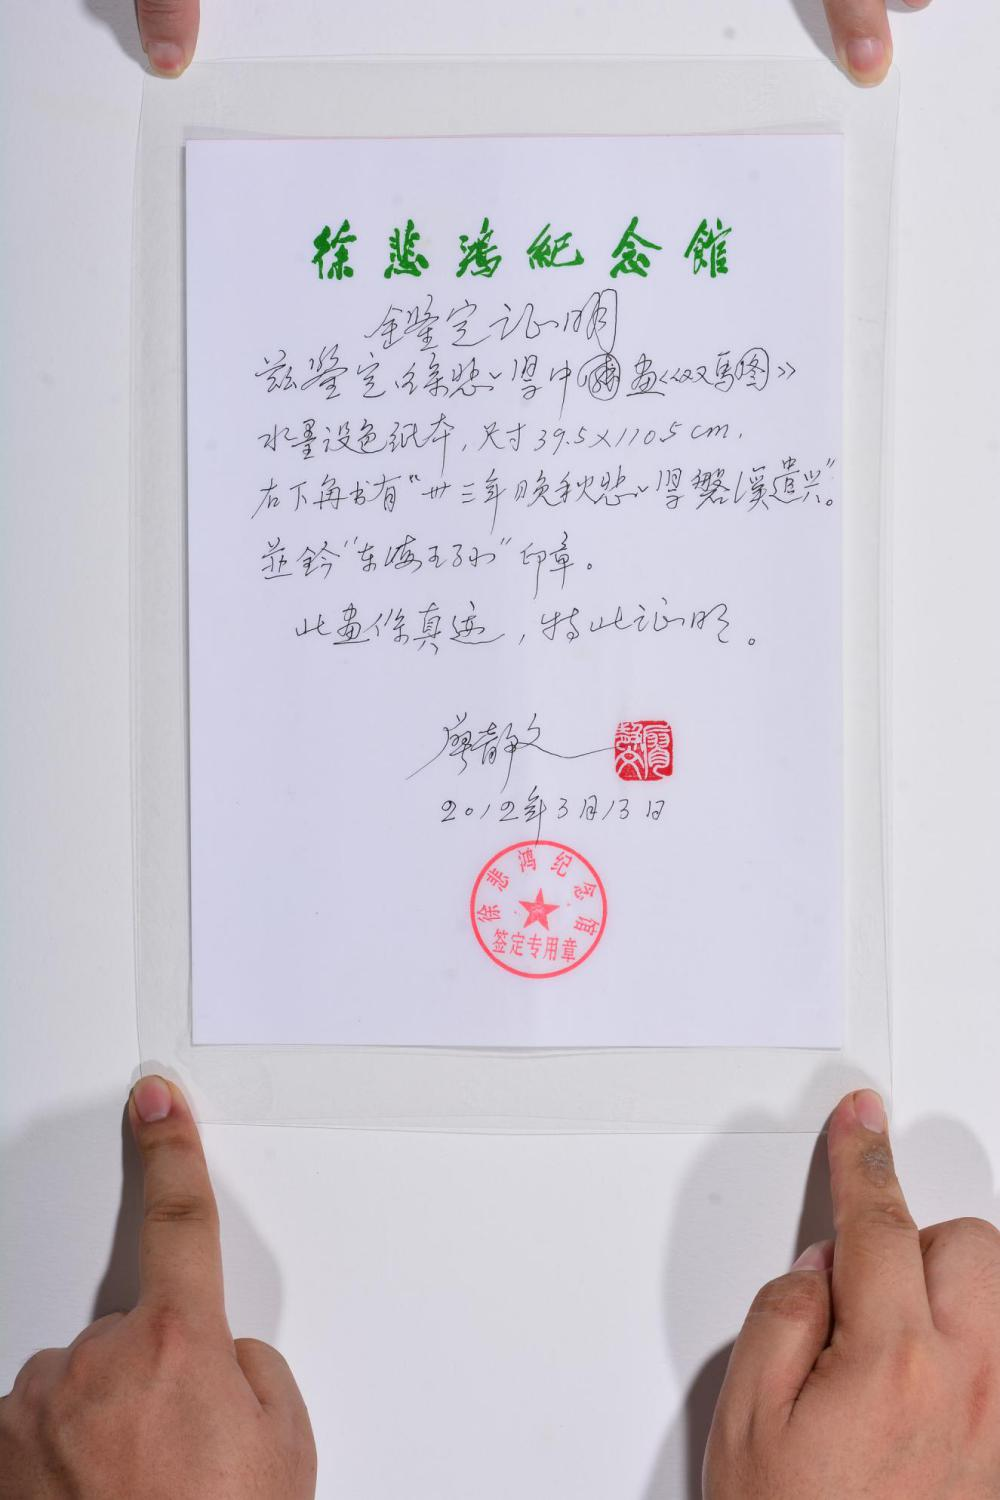 徐悲鸿纪念馆
鉴定证明
兹鉴定徐悲鸿中国画《双马图》
水墨设色纸本，尺寸39.5×110.5cm，
右下角书有“卅三年晚秋悲鸿磐溪遣兴”。
并钤“东海王孙”印章。
此画系真迹，特此证明。
廖静文
廖静文
2012年3月13日
徐悲鸿纪念馆
签定专用章